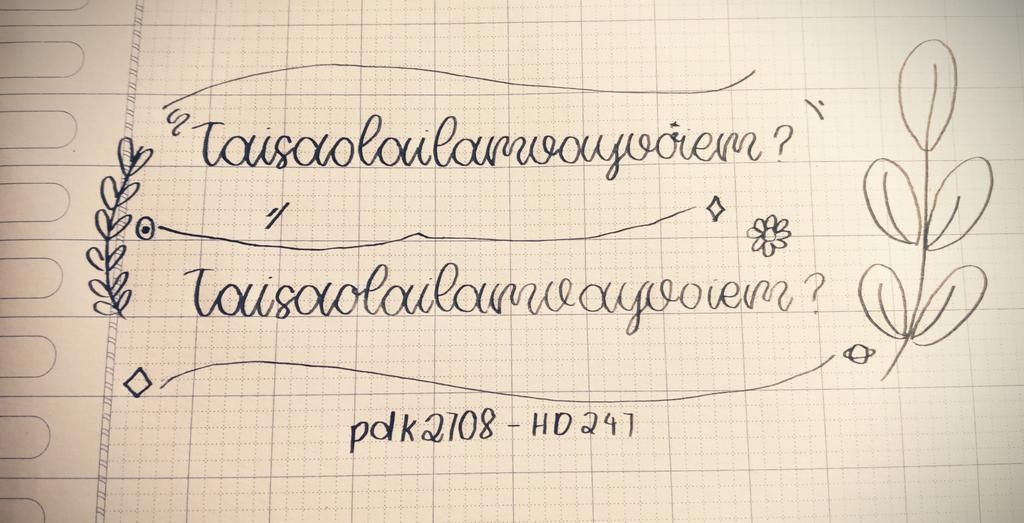 Taisaolailamvayvoiem?
Taisaolailamvayvoiem?
pdk2708 - HD247